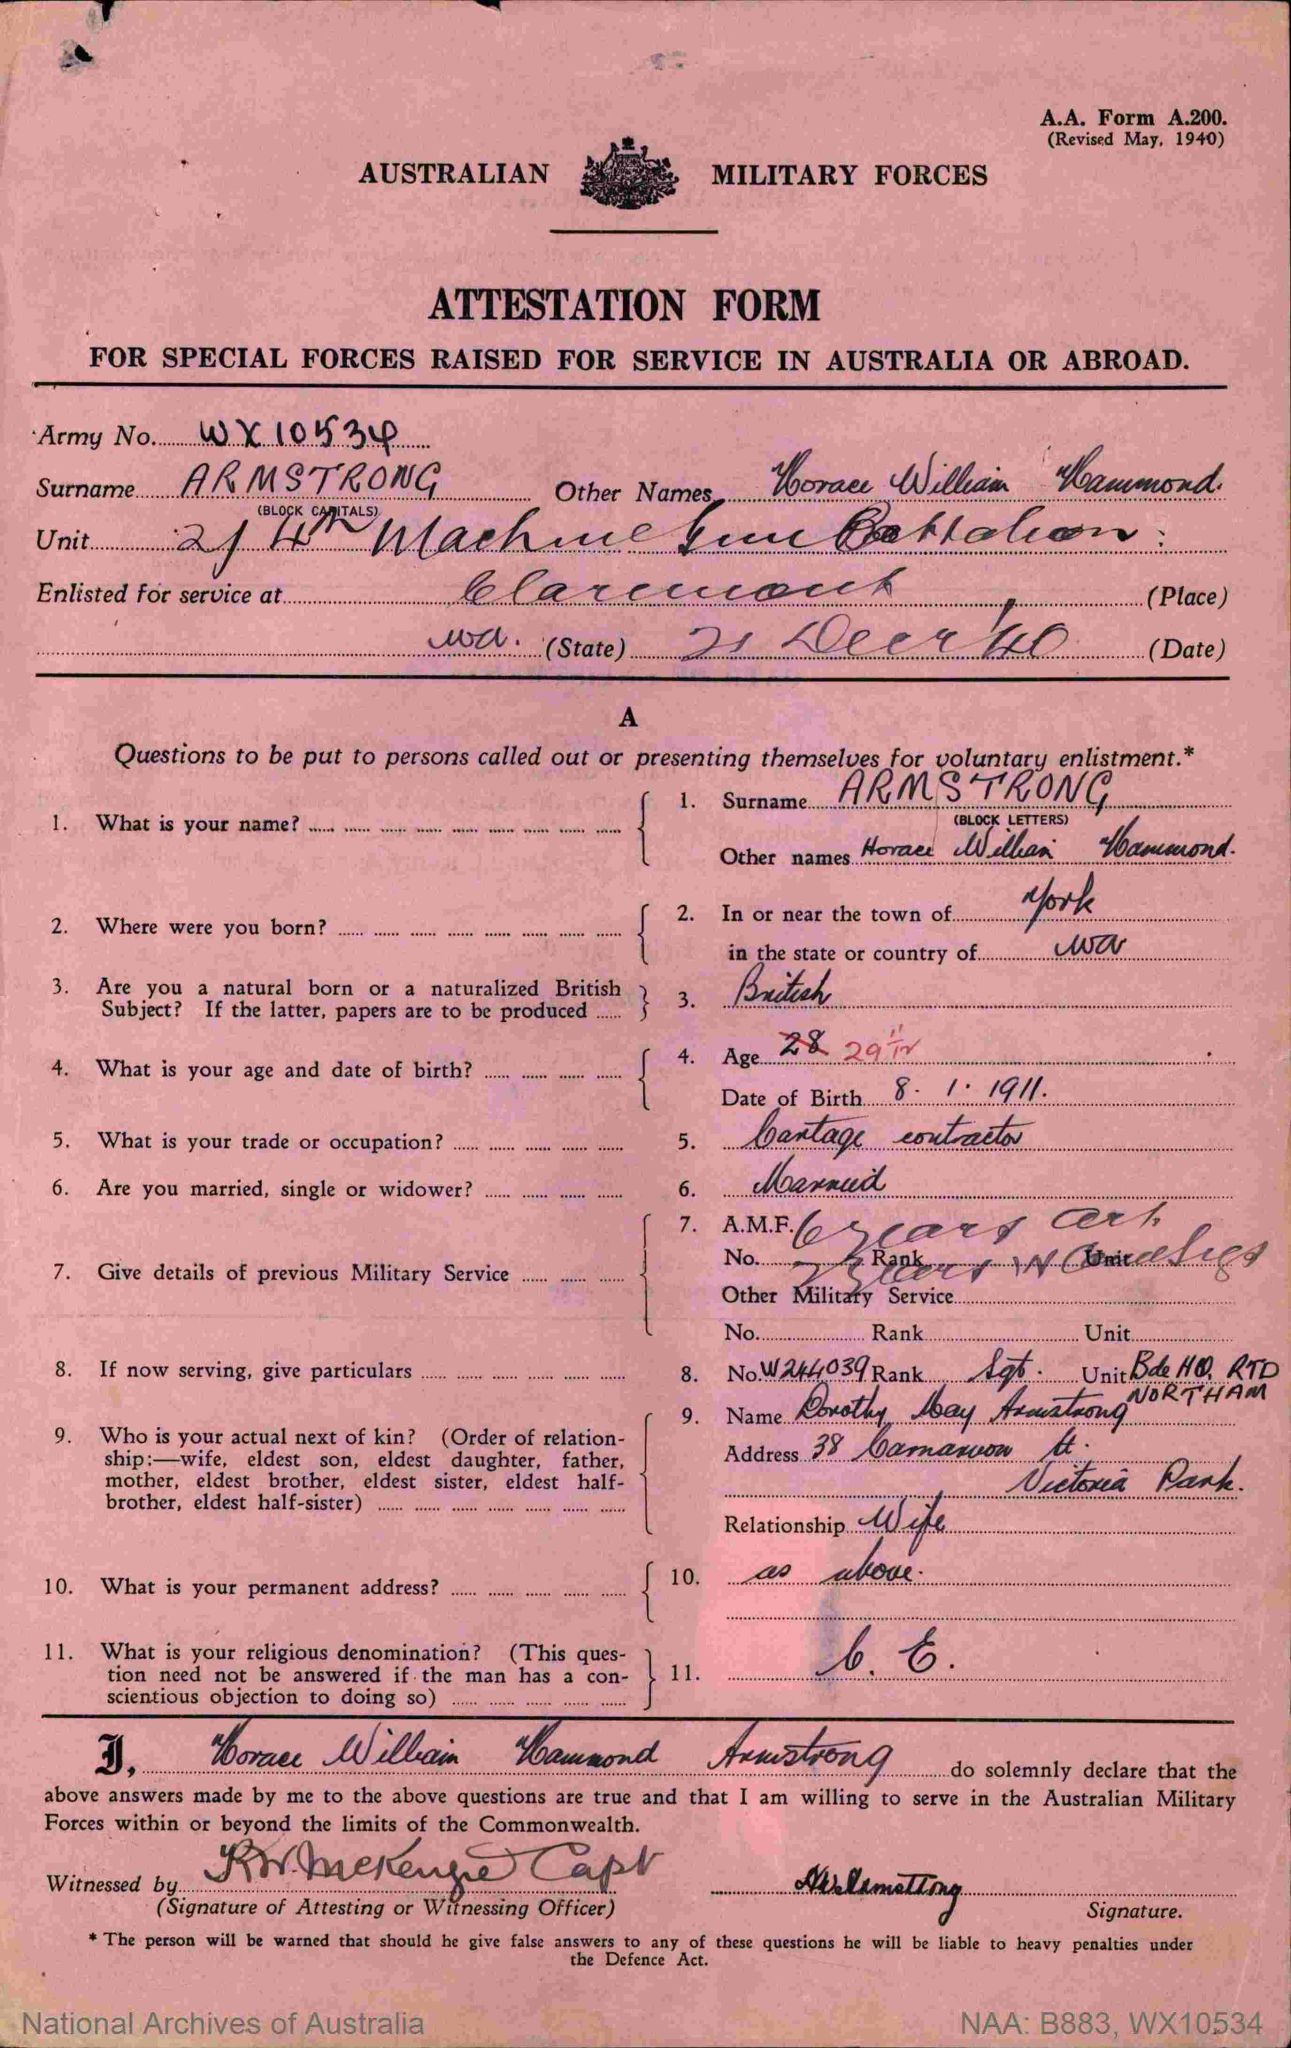 A.A. Form A.200.
(Revised May, 1940)
AUSTRALIAN MILITARY FORCES
ATTESTATION FORM
FOR SPECIAL FORCES RAISED FOR SERVICE IN AUSTRALIA OR ABROAD.
Army No. WX10534
Surname ARMSTRONG Other Names Horace William Hammond.
(BLOCK CAPITALS)
Unit 2/4th Machine Gun Battalion.
Enlisted for service at Claremont (Place)
WA. (State) 21 Decr '40 (Date)
A
Questions to be put to persons called out or presenting themselves for voluntary enlistment.*
1. What is your name? 1. Surname ARMSTRONG
(BLOCK LETTERS)
Other names Horace William Hammond.
2. Where were you born? 2. In or near the town of York
in the state or country of WA
3. Are you a natural born or a naturalized British
Subject? If the latter, papers are to be produced 3. British
4. What is your age and date of birth? 4. Age 28 29 11/12
Date of Birth 8. 1. 1911.
5. What is your trade or occupation? 5. Cartage contractor
6. Are you married, single or widower? 6. Married
7. Give details of previous Military Service 7. A.M.F. 6 years Art
No. Rank Unit
2 years W
Other Military Service
No. Rank Unit
8. If now serving, give particulars 8. No. W244039 Rank Sgt. Unit Bde HQ. RTD
NORTHAM
9. Who is your actual next of kin? (Order of relation-
ship:—wife, eldest son, eldest daughter, father,
mother, eldest brother, eldest sister, eldest half-
brother, eldest half-sister)
9. Name Dorothy May Armstrong
Address 38 Carnarvon St.
Victoria Park.
Relationship Wife
10. What is your permanent address? 10. as above.
11. What is your religious denomination? (This ques-
tion need not be answered if the man has a con-
scientious objection to doing so)
11. C. E.
I, Horace William Hammond Armstrong do solemnly declare that the
above answers made by me to the above questions are true and that I am willing to serve in the Australian Military
Forces within or beyond the limits of the Commonwealth.
Witnessed by R.W. McKenzie Capt HWArmstrong
(Signature of Attesting or Witnessing Officer) Signature.
* The person will be warned that should he give false answers to any of these questions he will be liable to heavy penalties under
the Defence Act.
National Archives of Australia NAA: B883, WX10534